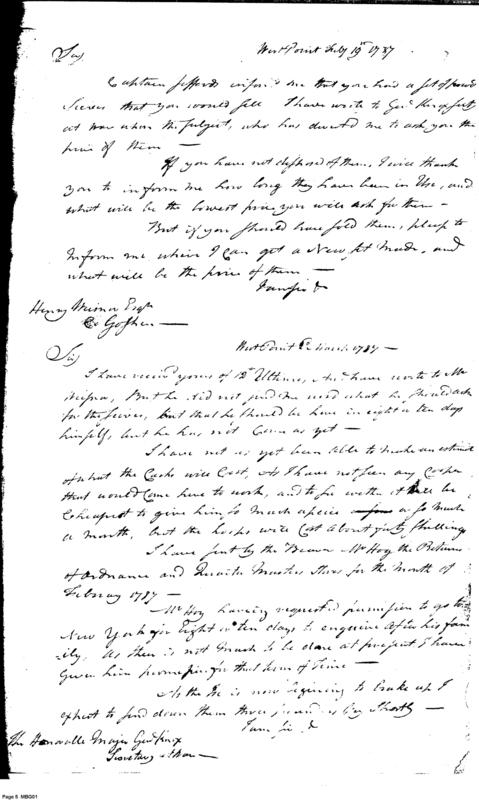 West Point Feby 19th 1787
Sir
Captain informd me that you had a set of powd
Screws that you would sell I have wrote to Genl Knox Secty
at War upon the subject, who has directed me to ask you the
price of them —
If you have not disposed of them, I will thank
you to inform me how long they have been in Use, and
what will be the lowest price you will ask for them —
But if you should have sold them, please to
Inform me where I can get a New set made, and
what will be the price of them —
I am Sir &
Henry Wisner Esqr
Goshen —
West Point March 1787 —
Sir
I have received yours of 12th Ultimo, and have wrote to Mr
Wisner, But he did not send me word what he should ask
for the Screws, but that he should be here in eight or ten days
himself, but he has not Come as yet —
I have not as yet been able to make an estimate
of what the Casks will Cost, As I have not seen any Cooper
that would Come here to work, and to see wether it will be
Cheapest to give him so much apiece or so much
a month, but the hoops will Cost about forty Shillings
I have sent by the Bearer Mr Hoy the Return
of Ordnance and Quarter Masters Stores for the Month of
February 1787 —
Mr Hoy having requested permission to go to
New York for Eight or ten days to enquire After his fam
ily, As there is not much to be done at present I have
Given him permission for that term of Time —
As the Ice is now beginning to brake up I
expect to send down them three Shortly —
I am Sir &
The Honorable Major Genl Knox
Secretary at War —
Page 5 MBG01